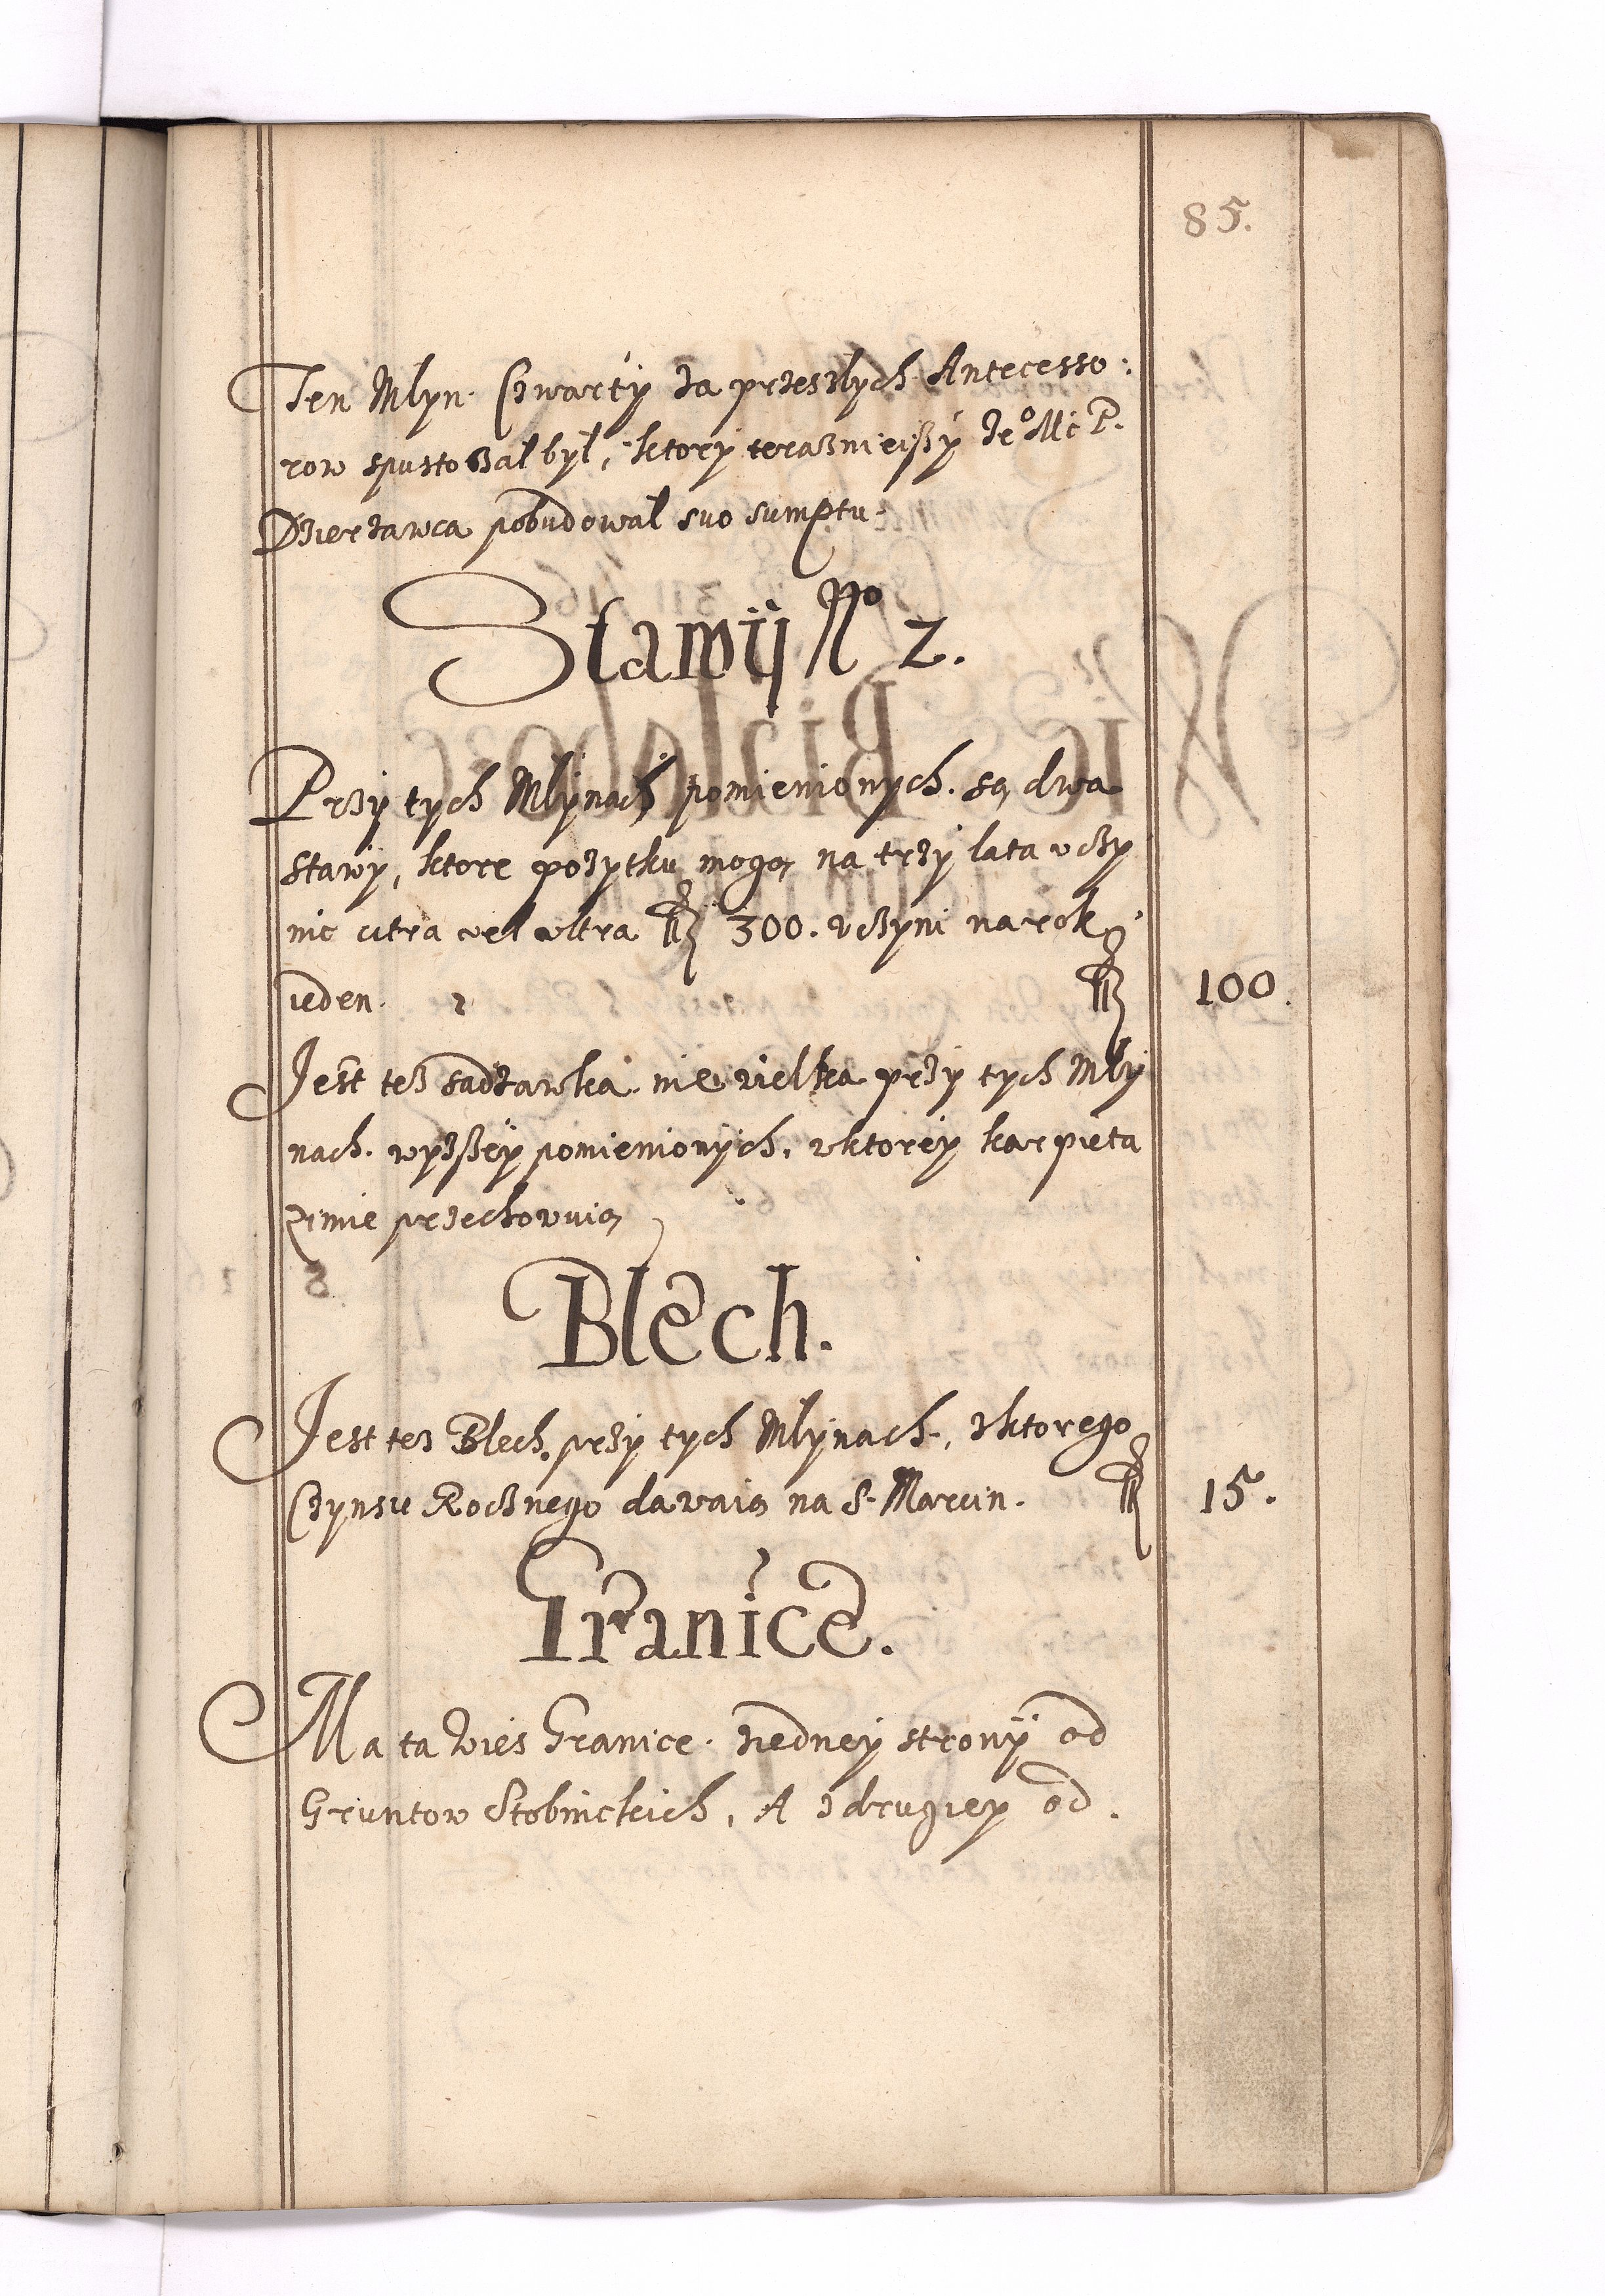 85.
Ten Mlyn Czwarty za przeszlych Antecesso:
row spustoszal byl, ktory teraznieiszy Je° Mć P.
Dzierzawca pobudowal suo sumptu.
Stawy N° 2.
Przy tych Mlynach pomienionych. są dwa
stawy, ktore pozytku mogą na trzy lata uczy
nic citra vel ultra 300. uczyni na rok
ieden. 100.
Jest tesz sadzawka nie wielka przy tych Mly
nach. wyższey pomienionych, w ktorey karpięta
zimie przechowuią
Blech.
Jest tesz Blech, przy tych Mlynach, z ktorego
Czynszu Rocznego dawaią na S. Marcin. 15.
Granice.
Ma ta Wies Granice. z iedney strony od
Gruntow Stobnickich, A z drugiey od.